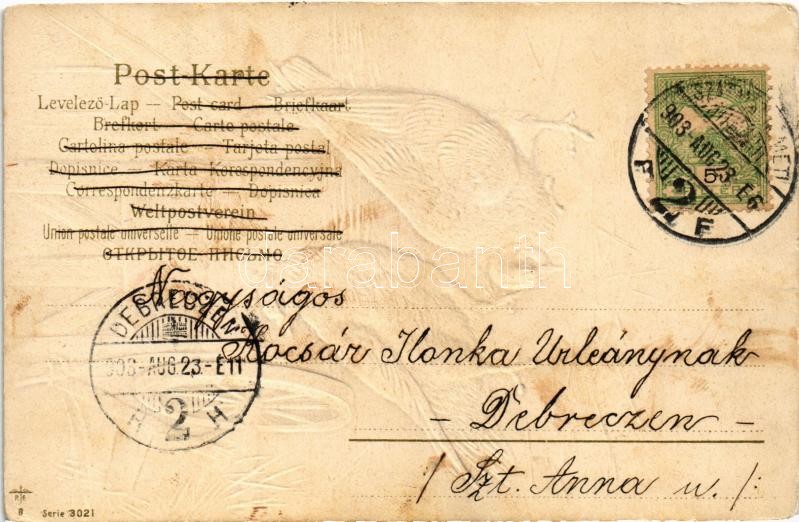 Post-Karte
Levelező-Lap — Post card — Briefkaart
Brefkort — Carte postale
Cartolina postale — Tarjeta postal
Dopisnice — Karta Korespondencyjna
Correspondenzkarte — Dopisnica
Weltpostverein
Union postale universelle — Unione postale universale
ОТКРЫТОЕ ПИСЬМО
903-AUG.23.-E6
5
2
F
Nagyságos
Kocsár Ilonka Urleánynak
— Debreczen —
/ Szt. Anna u. /
DEBRECZEN
903-AUG.23.-E11
H 2 H
darabanth
8 Serie 3021